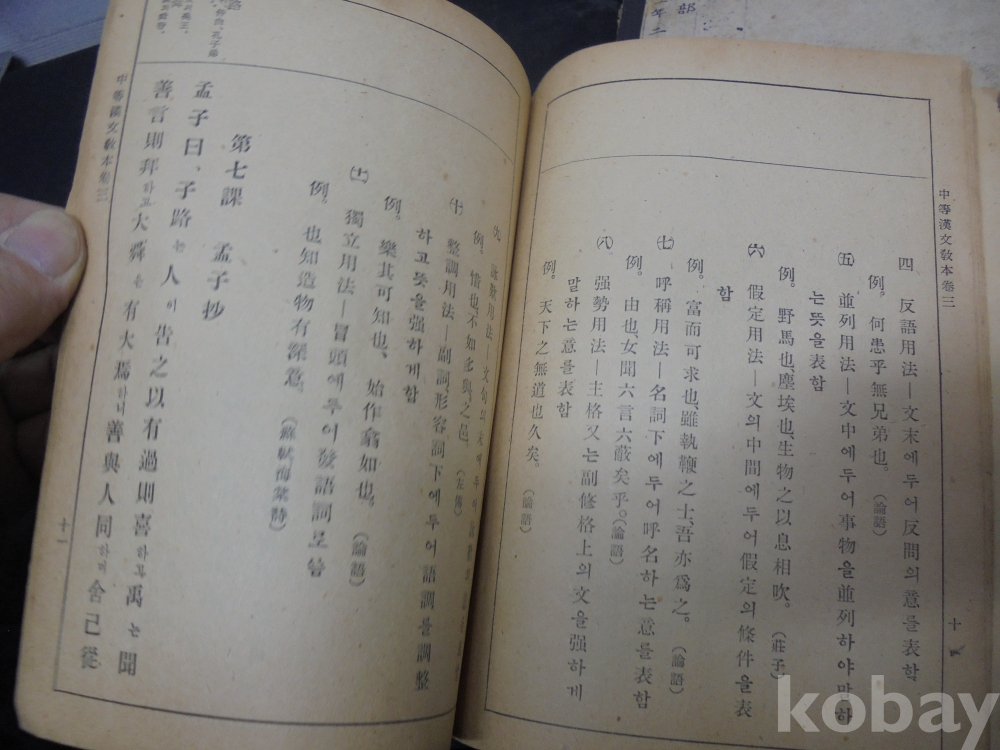 中等漢文敎本卷三
四 反語用法—文末에두어反問의意를表함
例。何患乎無兄弟也。(論語)
(五) 並列用法—文中에두어事物을並列하야말하
는뜻을表함
例。野馬也、塵埃也、生物之以息相吹。(莊子)
(六) 假定用法—文의中間에두어假定의條件을表
함
例。富而可求也、雖執鞭之士、吾亦爲之。(論語)
(七) 呼稱用法—名詞下에두어呼名하는意를表함
例。由也、女聞六言六蔽矣乎。(論語)
(八) 强勢用法—主格又는副修格上의文을强하게
말하는意를表함
例。天下之無道也久矣。(論語)
十
用法—文句의末에두어
例。惜也、不如多與之邑。(左傳)
(十) 整調用法—副詞形容詞下에두어語調를調整
하고뜻을强하게함
例。樂其可知也、始作翕如也。(論語)
(十一) 獨立用法—冒頭에두어發語詞로씀
例。也知造物有深意、(蘇軾海棠詩)
第七課 孟子抄
孟子曰、子路는人이告之以有過則喜하고禹는聞
善言則拜하고大舜은有大焉하니善與人同하며舍己從
中等漢文敎本卷三
十一
kobay